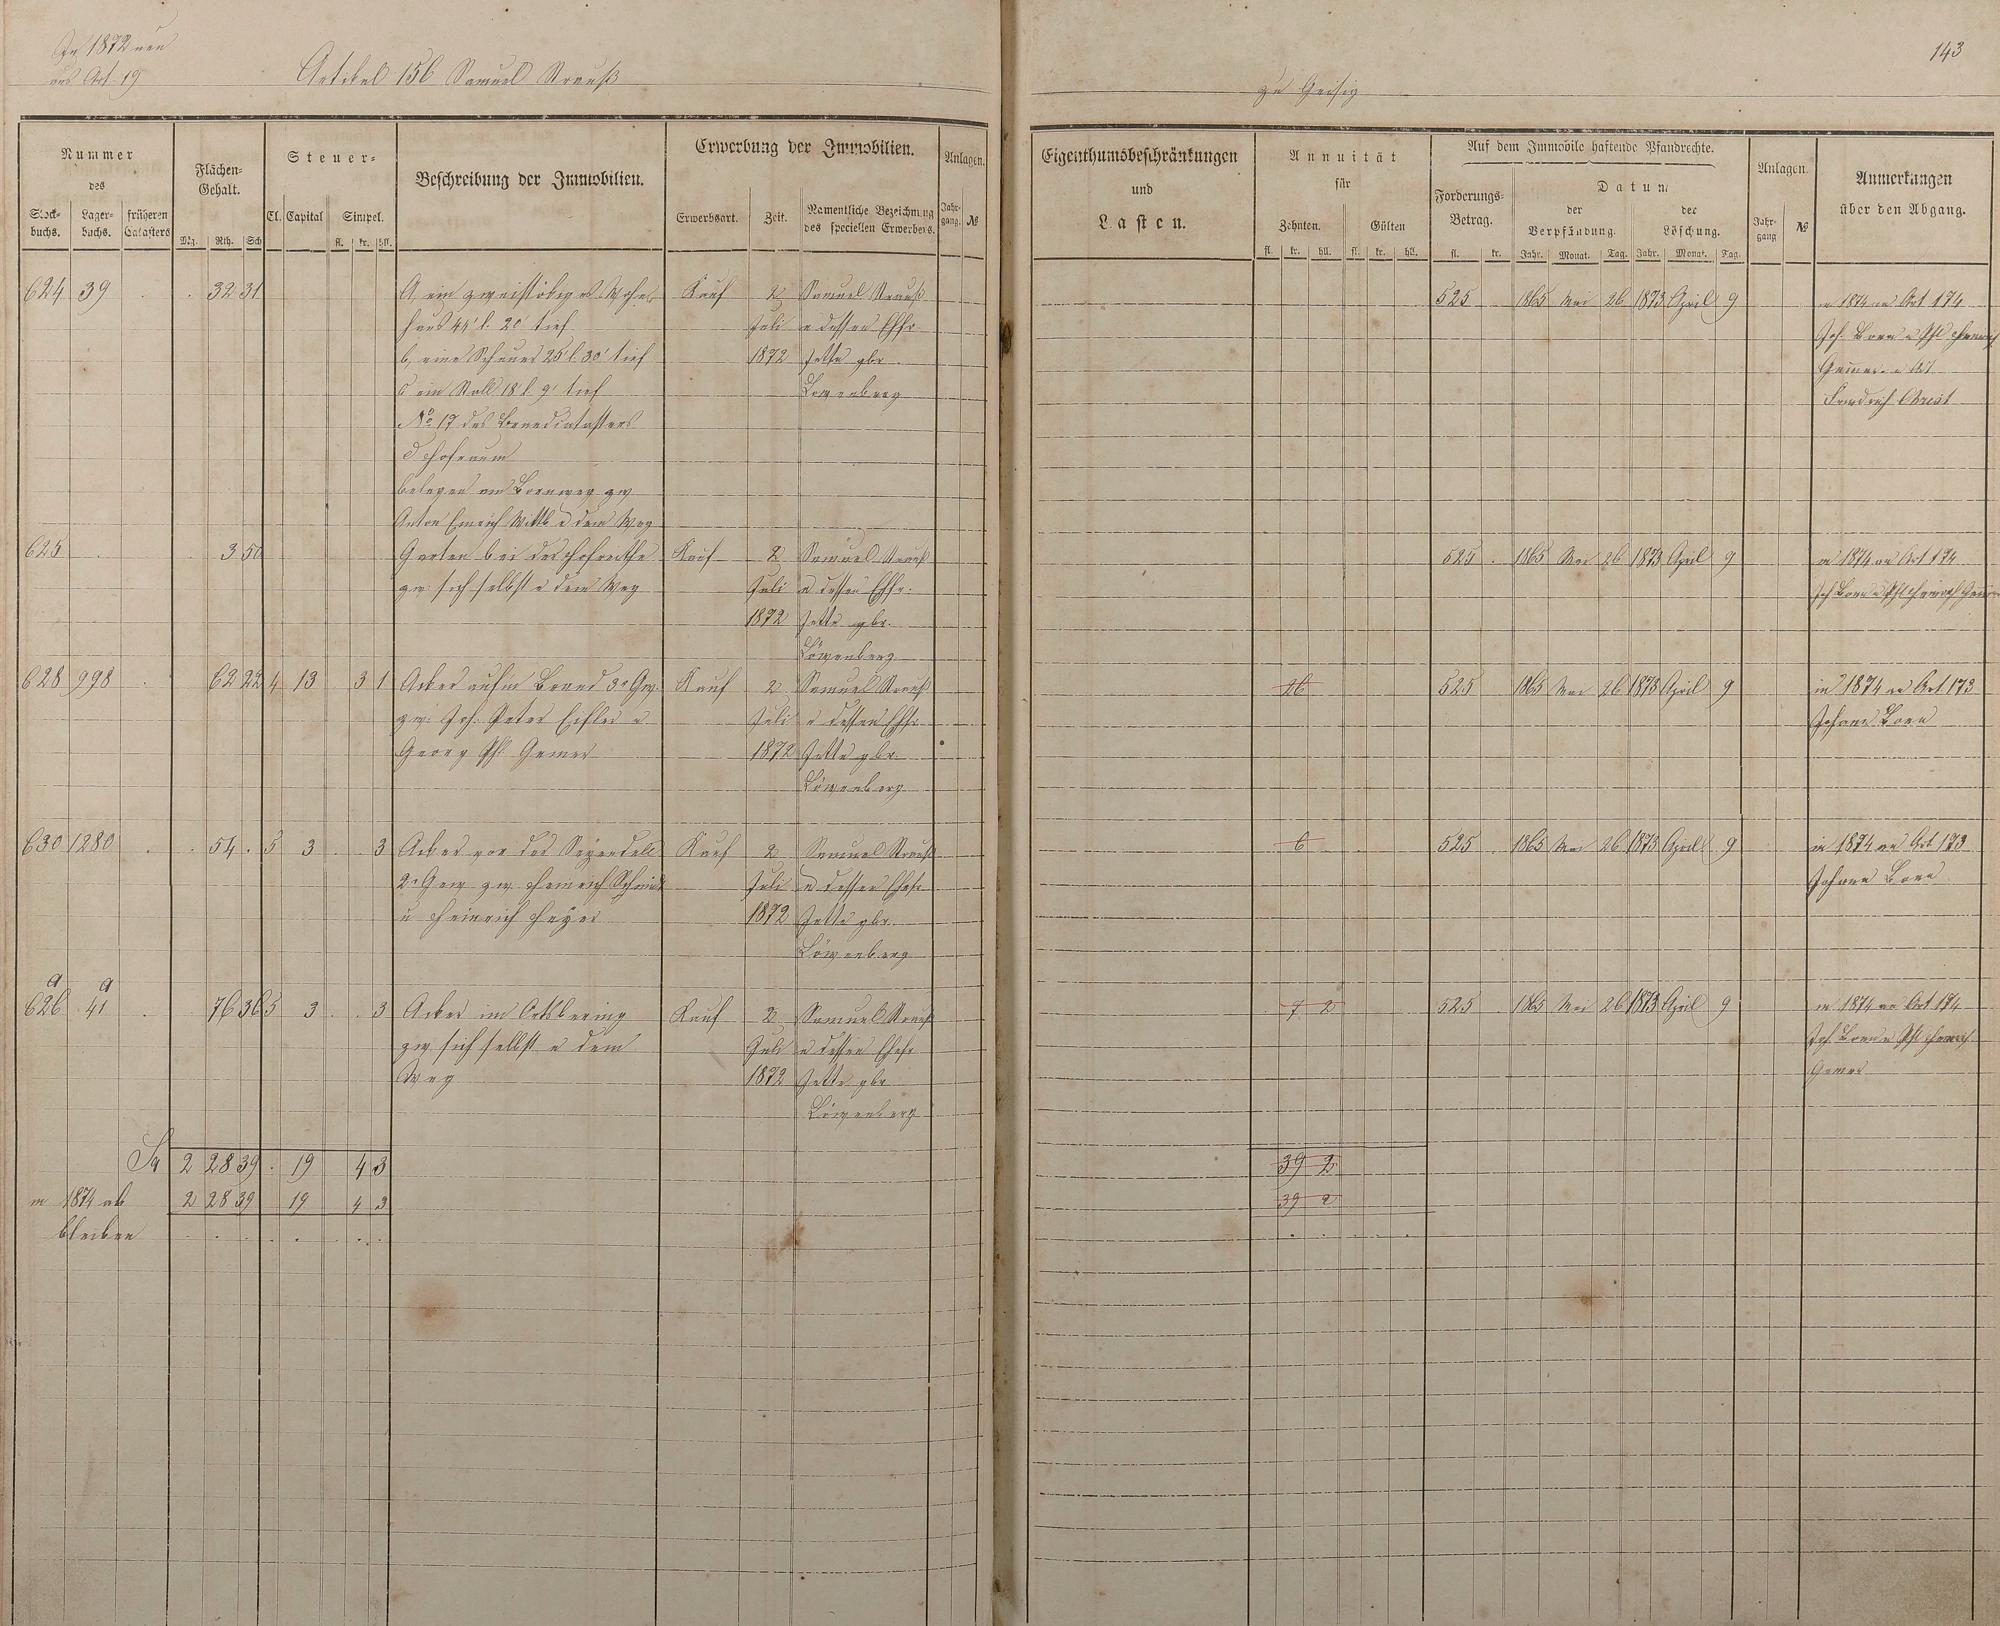 In 1872 neu
aus Art. 19
Artikel 156 Samuel Strauß
zu Geisig
143
Nummer
des
Stock-
buchs.
Lager-
buchs.
früheren
Catasters
Flächen-
Gehalt.
Mg. Rth. Sch
Steuer-
Cl. Capital Simpel.
fl. kr. hll.
Beschreibung der Immobilien.
Erwerbung der Immobilien.
Erwerbsart. Zeit. Namentliche Bezeichnung
des speciellen Erwerbers.
Anlagen.
Jahr-
gang. №
Eigenthumsbeschränkungen
und
Lasten.
Annuität
für
Zehnten. Gülten
fl. kr. hll. fl. kr. hll.
Auf dem Immobile haftende Pfandrechte.
Forderungs-
Betrag.
fl. kr.
Datum
der
Verpfändung.
der
Löschung.
Jahr. Monat. Tag. Jahr. Monat. Tag.
Anlagen.
Jahr-
gang №
Anmerkungen
über den Abgang.
624 39 . . 32 31 a, ein zweistöckiges Wohn- Kauf 2 Samuel Strauß 525 1865 Mai 26 1873 April 9 in 1874 an Art 174
haus 44' l. 20' tief Juli u dessen Ehfr Joh. Born u Phl Heinrich
b, eine Scheuer 25' l. 30' tief 1872 Jette gbr Gemmer u Art
c ein Stall 18' l. 9' tief Löwenberg Friedrich
No 17 des Brandcatasters
d Hofraum
belegen am Bornweg zw
Anton Emrich Wittb u dem Weg
625 . . 3 50 Garten bei der Hofreithe Kauf 2 Samuel Strauß 525 . 1865 Mai 26 1873 April 9 in 1874 an Art 174
zw sich selbst u dem Weg Juli u dessen Ehfr: Joh Born u Phl Heinrich
1872 Jette gbr.
Löwenberg
628 998 . 62 22 4 13 3 1 Acker auf'm Brand 3r Gew. Kauf 2 Samuel Strauß 26 525 1865 Mai 26 1873 April 9 in 1874 an Art 173
zw: Joh. Peter u Juli u dessen Ehfr Johann Born
Georg Phl Gemer 1872 Jette gbr.
Löwenberg
630 1280 . . 54 . 5 3 . . 3 Acker vor der Kauf 2 Samuel Strauß 6 525 . 1865 Mai 26 1873 April 9 in 1874 an Art 173
2r Gew zw Heinrich Schmidt Juli u dessen Ehefr Johann Born
u Heinrich Heyer 1872 Jette gbr.
Löwenberg
a a
626 41 . . 76 36 5 3 . . 3 Acker im Ortsbering Kauf 2 Samuel Strauß 7 2 525 . 1865 Mai 26 1873 April 9 in 1874 an Art 174
zw sich selbst u dem Juli u dessen Ehefr Joh. Born u Phl Heinrich
Weg 1872 Jette gbr Gemer
Löwenberg
Sa 2 28 39 . 19 4 3 39 2
in 1874 ab 2 28 39 19 4 3 39 2
bleiben . . . . . . .